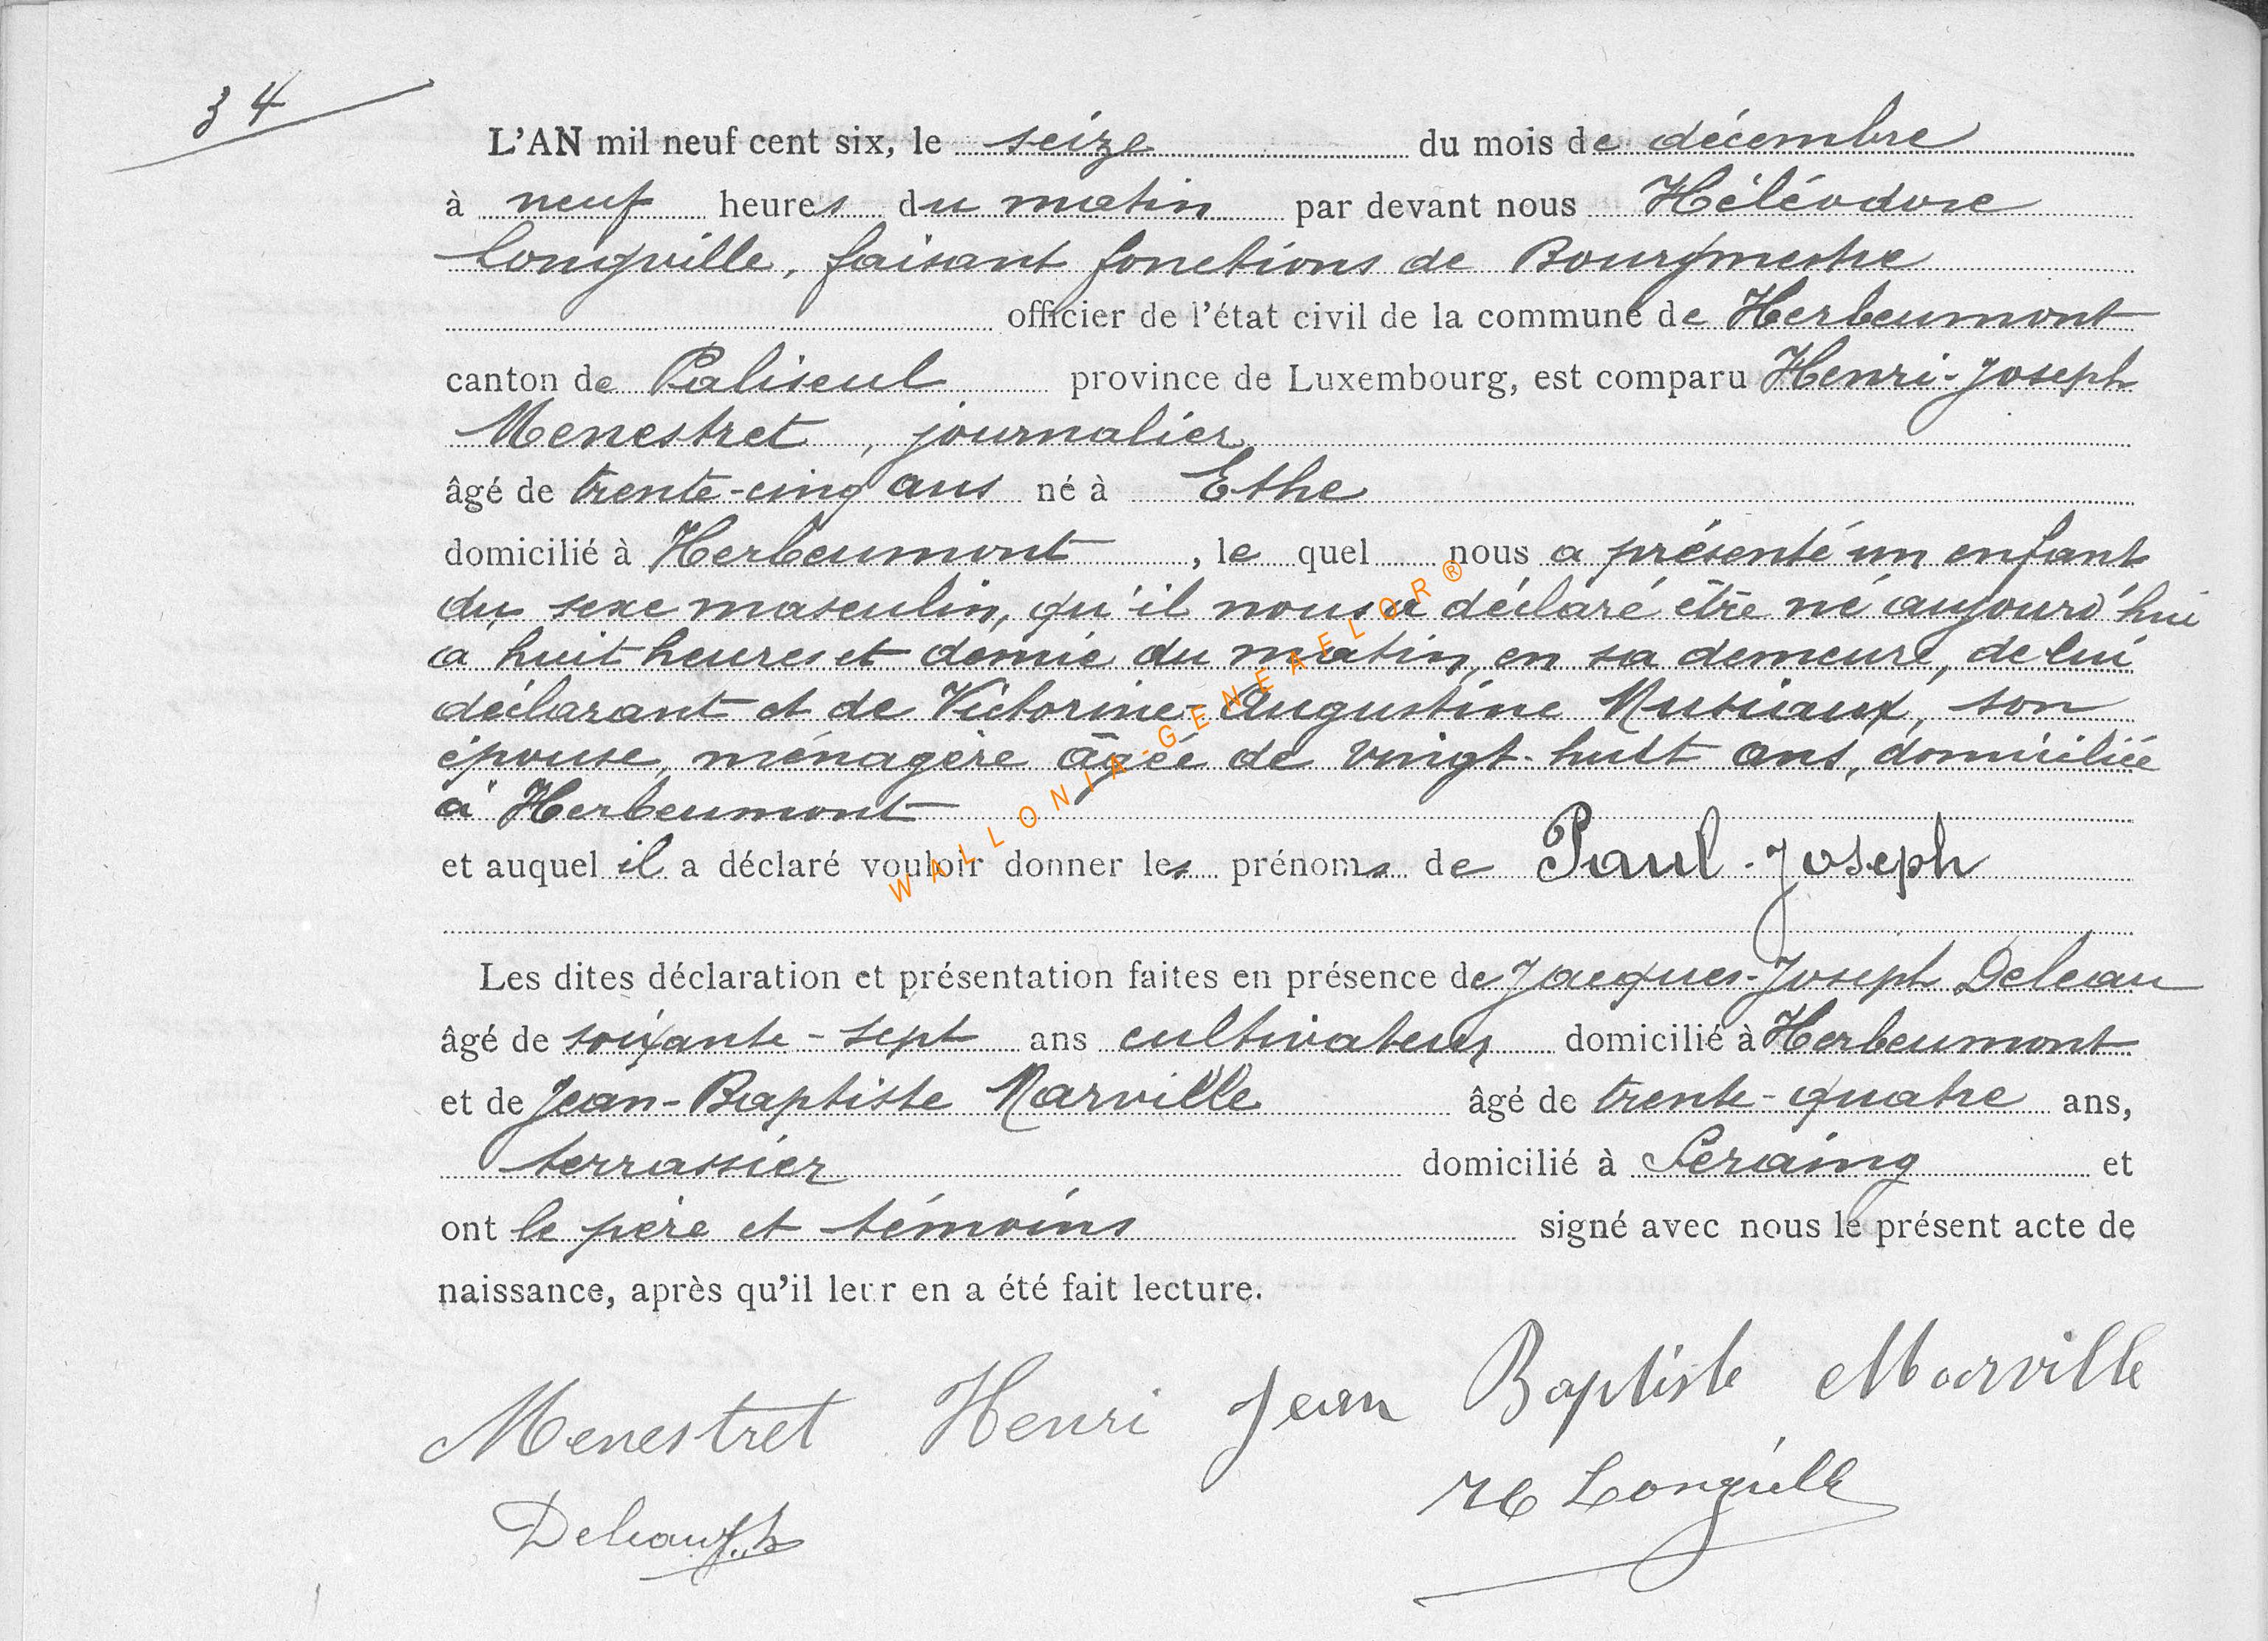 34
L'AN mil neuf cent six, le seize du mois de décembre
à neuf heures du matin par devant nous Héléodore
Longville, faisant fonctions de Bourgmestre
officier de l'état civil de la commune de Herbeumont
canton de Paliseul province de Luxembourg, est comparu Henri-Joseph
Menestret, journalier
âgé de trente-cinq ans né à Ethe
domicilié à Herbeumont, le quel nous a présenté un enfant
du sexe masculin, qu'il nous a déclaré être né aujourd'hui
a huit heures et demie du matin, en sa demeure, de lui
déclarant et de Victorine-Augustine son
épouse, ménagère âgée de vingt-huit ans, domiciliée
à Herbeumont
et auquel il a déclaré vouloir donner les prénoms de Paul-Joseph
Les dites déclaration et présentation faites en présence de Jacques-Joseph Deleau
âgé de soixante-sept ans cultivateur domicilié à Herbeumont
et de Jean-Baptiste Marville âgé de trente-quatre ans,
terrassier domicilié à Seraing et
ont le père et témoins signé avec nous le présent acte de
naissance, après qu'il leur en a été fait lecture.
Menestret Henri Jean Baptiste Marville
Deleau J.h H Longville
WALLONIA-GENEAELOR®